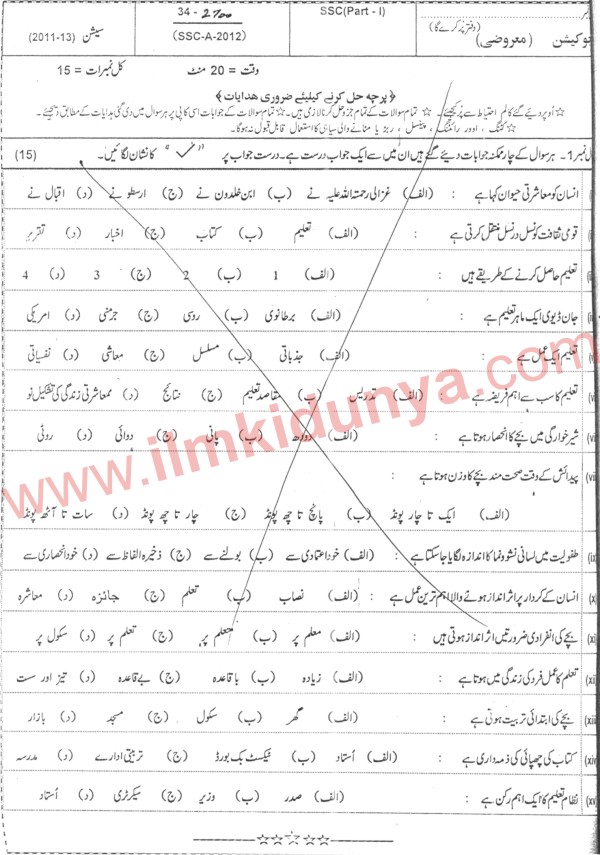 34 - 2700
SSC(Part - I)
(دفتر پُر کرے گا)
(معروضی)
(SSC-A-2012)
سیشن (2011-13)
وقت = 20 منٹ کل نمبرات = 15
﴿ پرچہ حل کرنے کیلئے ضروری ھدایات ﴾
☆ اُوپر دیئے گئے کالم احتیاط سے پُر کیجئے۔ ☆ تمام سوالات کے تمام جز و حل کرنا لازمی ہیں۔ ☆ تمام سوالات کے جوابات اسی کاپی پر ہر سوال میں دی گئی ہدایات کے مطابق دیجئے۔
☆ کٹنگ، اوور رائٹنگ، پینسل، ربڑ یا مٹانے والی سیاہی کا استعمال قابل قبول نہ ہوگا۔
نمبر 1۔ ہر سوال کے چار ممکنہ جوابات دیئے گئے ہیں ان میں سے ایک جواب درست ہے۔ درست جواب پر " ✓ " کا نشان لگائیں۔ (15)
انسان کو معاشرتی حیوان کہا ہے : (الف) غزالی رحمتہ اللہ علیہ نے (ب) ابن خلدون نے (ج) ارسطو نے (د) اقبال نے
قومی ثقافت کو نسل در نسل منتقل کرتی ہے : (الف) تعلیم (ب) کتاب (ج) اخبار (د) تقریر
تعلیم حاصل کرنے کے طریقے ہیں : (الف) 1 (ب) 2 (ج) 3 (د) 4
جان ڈیوی ایک ماہر تعلیم ہے : (الف) برطانوی (ب) روسی (ج) جرمنی (د) امریکی
تعلیم ایک عمل ہے : (الف) جذباتی (ب) مسلسل (ج) معاشی (د) نفسیاتی
تعلیم کا سب سے اہم فریضہ ہے : (الف) تدریس (ب) مقاصد تعلیم (ج) نتائج (د) معاشرتی زندگی کی تشکیل نو
شیر خوارگی میں بچے کا انحصار ہوتا ہے : (الف) دودھ (ب) پانی (ج) دوائی (د) روٹی
پیدائش کے وقت صحت مند بچے کا وزن ہوتا ہے
(الف) ایک تا چار پونڈ (ب) پانچ تا چھ پونڈ (ج) چار تا چھ پونڈ (د) سات تا آٹھ پونڈ
(ix) طفولیت میں لسانی نشوونما کا اندازہ لگایا جاسکتا ہے : (الف) خود اعتمادی سے (ب) بولنے سے (ج) ذخیرہ الفاظ سے (د) خود انحصاری سے
(x) انسان کے کردار پر اثر انداز ہونے والا اہم ترین عمل ہے : (الف) نصاب (ب) تعلم (ج) جائزہ (د) معاشرہ
(xi) بچے کی انفرادی ضرورتیں اثر انداز ہوتی ہیں : (الف) معلم پر (ب) متعلم پر (ج) تعلم پر (د) سکول پر
(xii) تعلم کا عمل فرد کی زندگی میں ہوتا ہے : (الف) زیادہ (ب) باقاعدہ (ج) بے قاعدہ (د) تیز اور سست
بچے کی ابتدائی تربیت ہوتی ہے : (الف) گھر (ب) سکول (ج) مسجد (د) بازار
(xiv) کتاب کی چھپائی کی ذمہ داری ہے : (الف) اُستاد (ب) ٹیکسٹ بک بورڈ (ج) تربیتی ادارے (د) مدرسہ
(xv) نظام تعلیم کا ایک اہم رکن ہے : (الف) صدر (ب) وزیر (ج) سیکرٹری (د) اُستاد
www.ilmkidunya.com